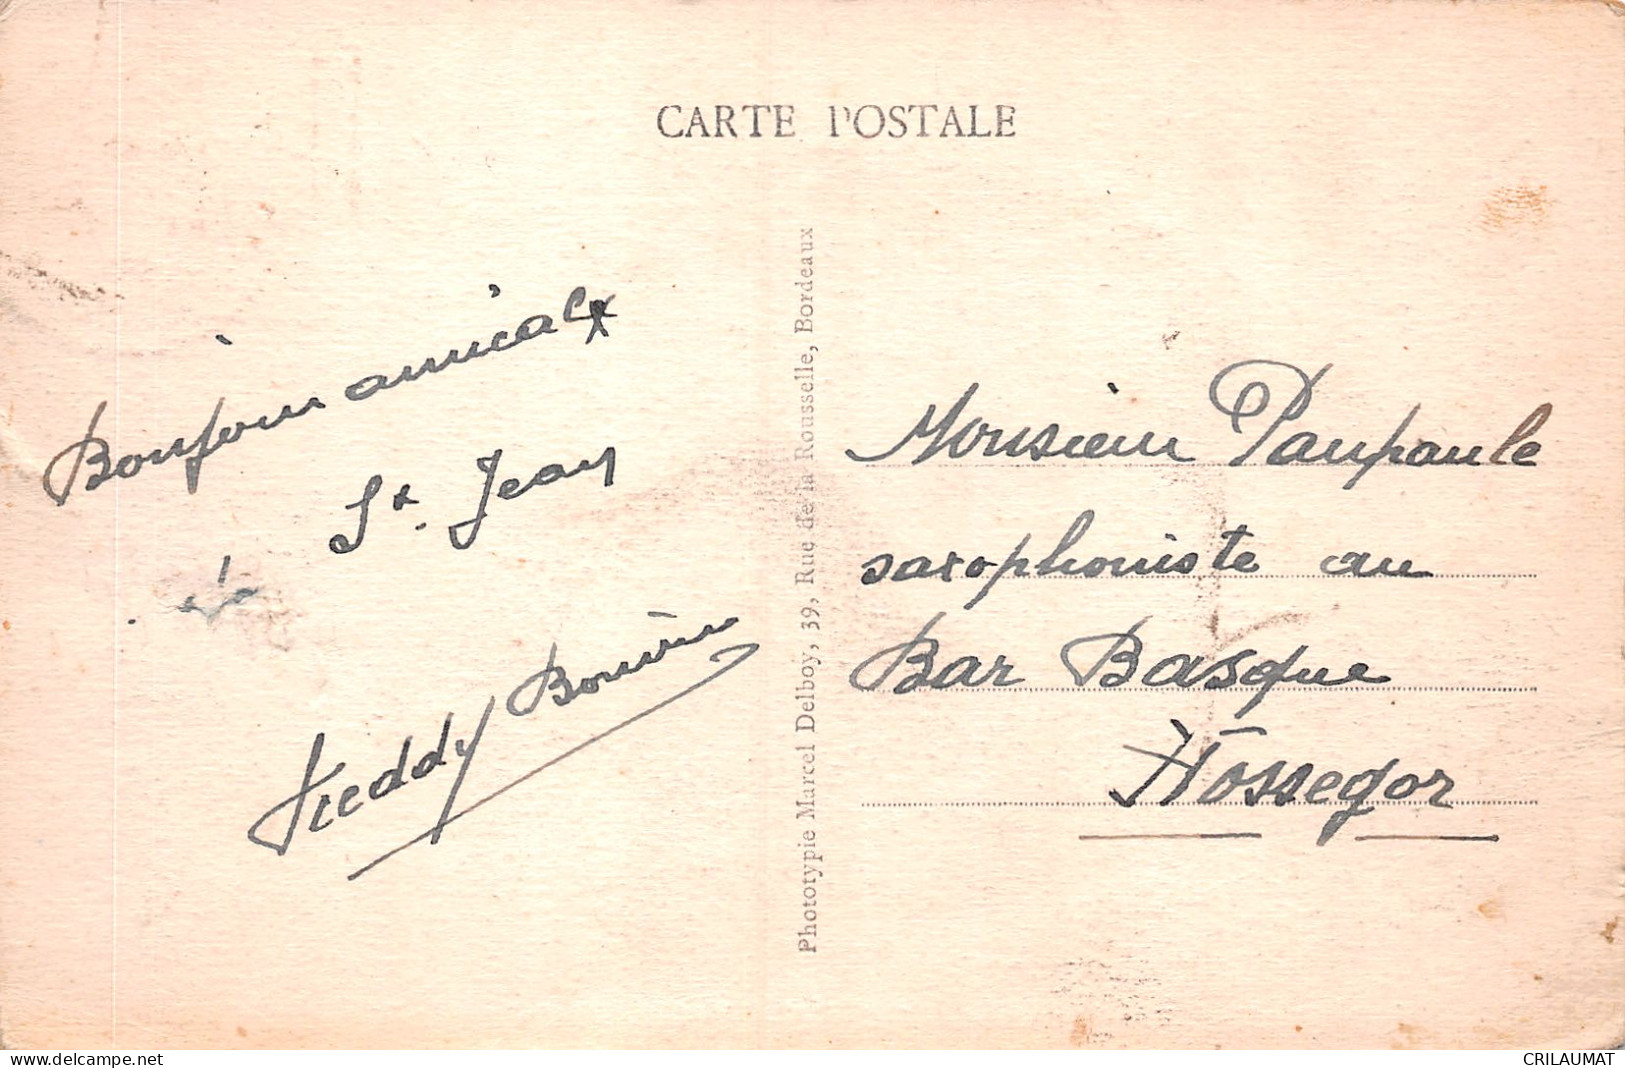 CARTE POSTALE
Bonjour amical
St. Jean
Freddy
Phototypie Marcel Delboy, 39, Rue de la Rousselle, Bordeaux
Monsieur Paupaule
saxophoniste au
Bar Basque
Hossegor
www.delcampe.net
CRILAUMAT